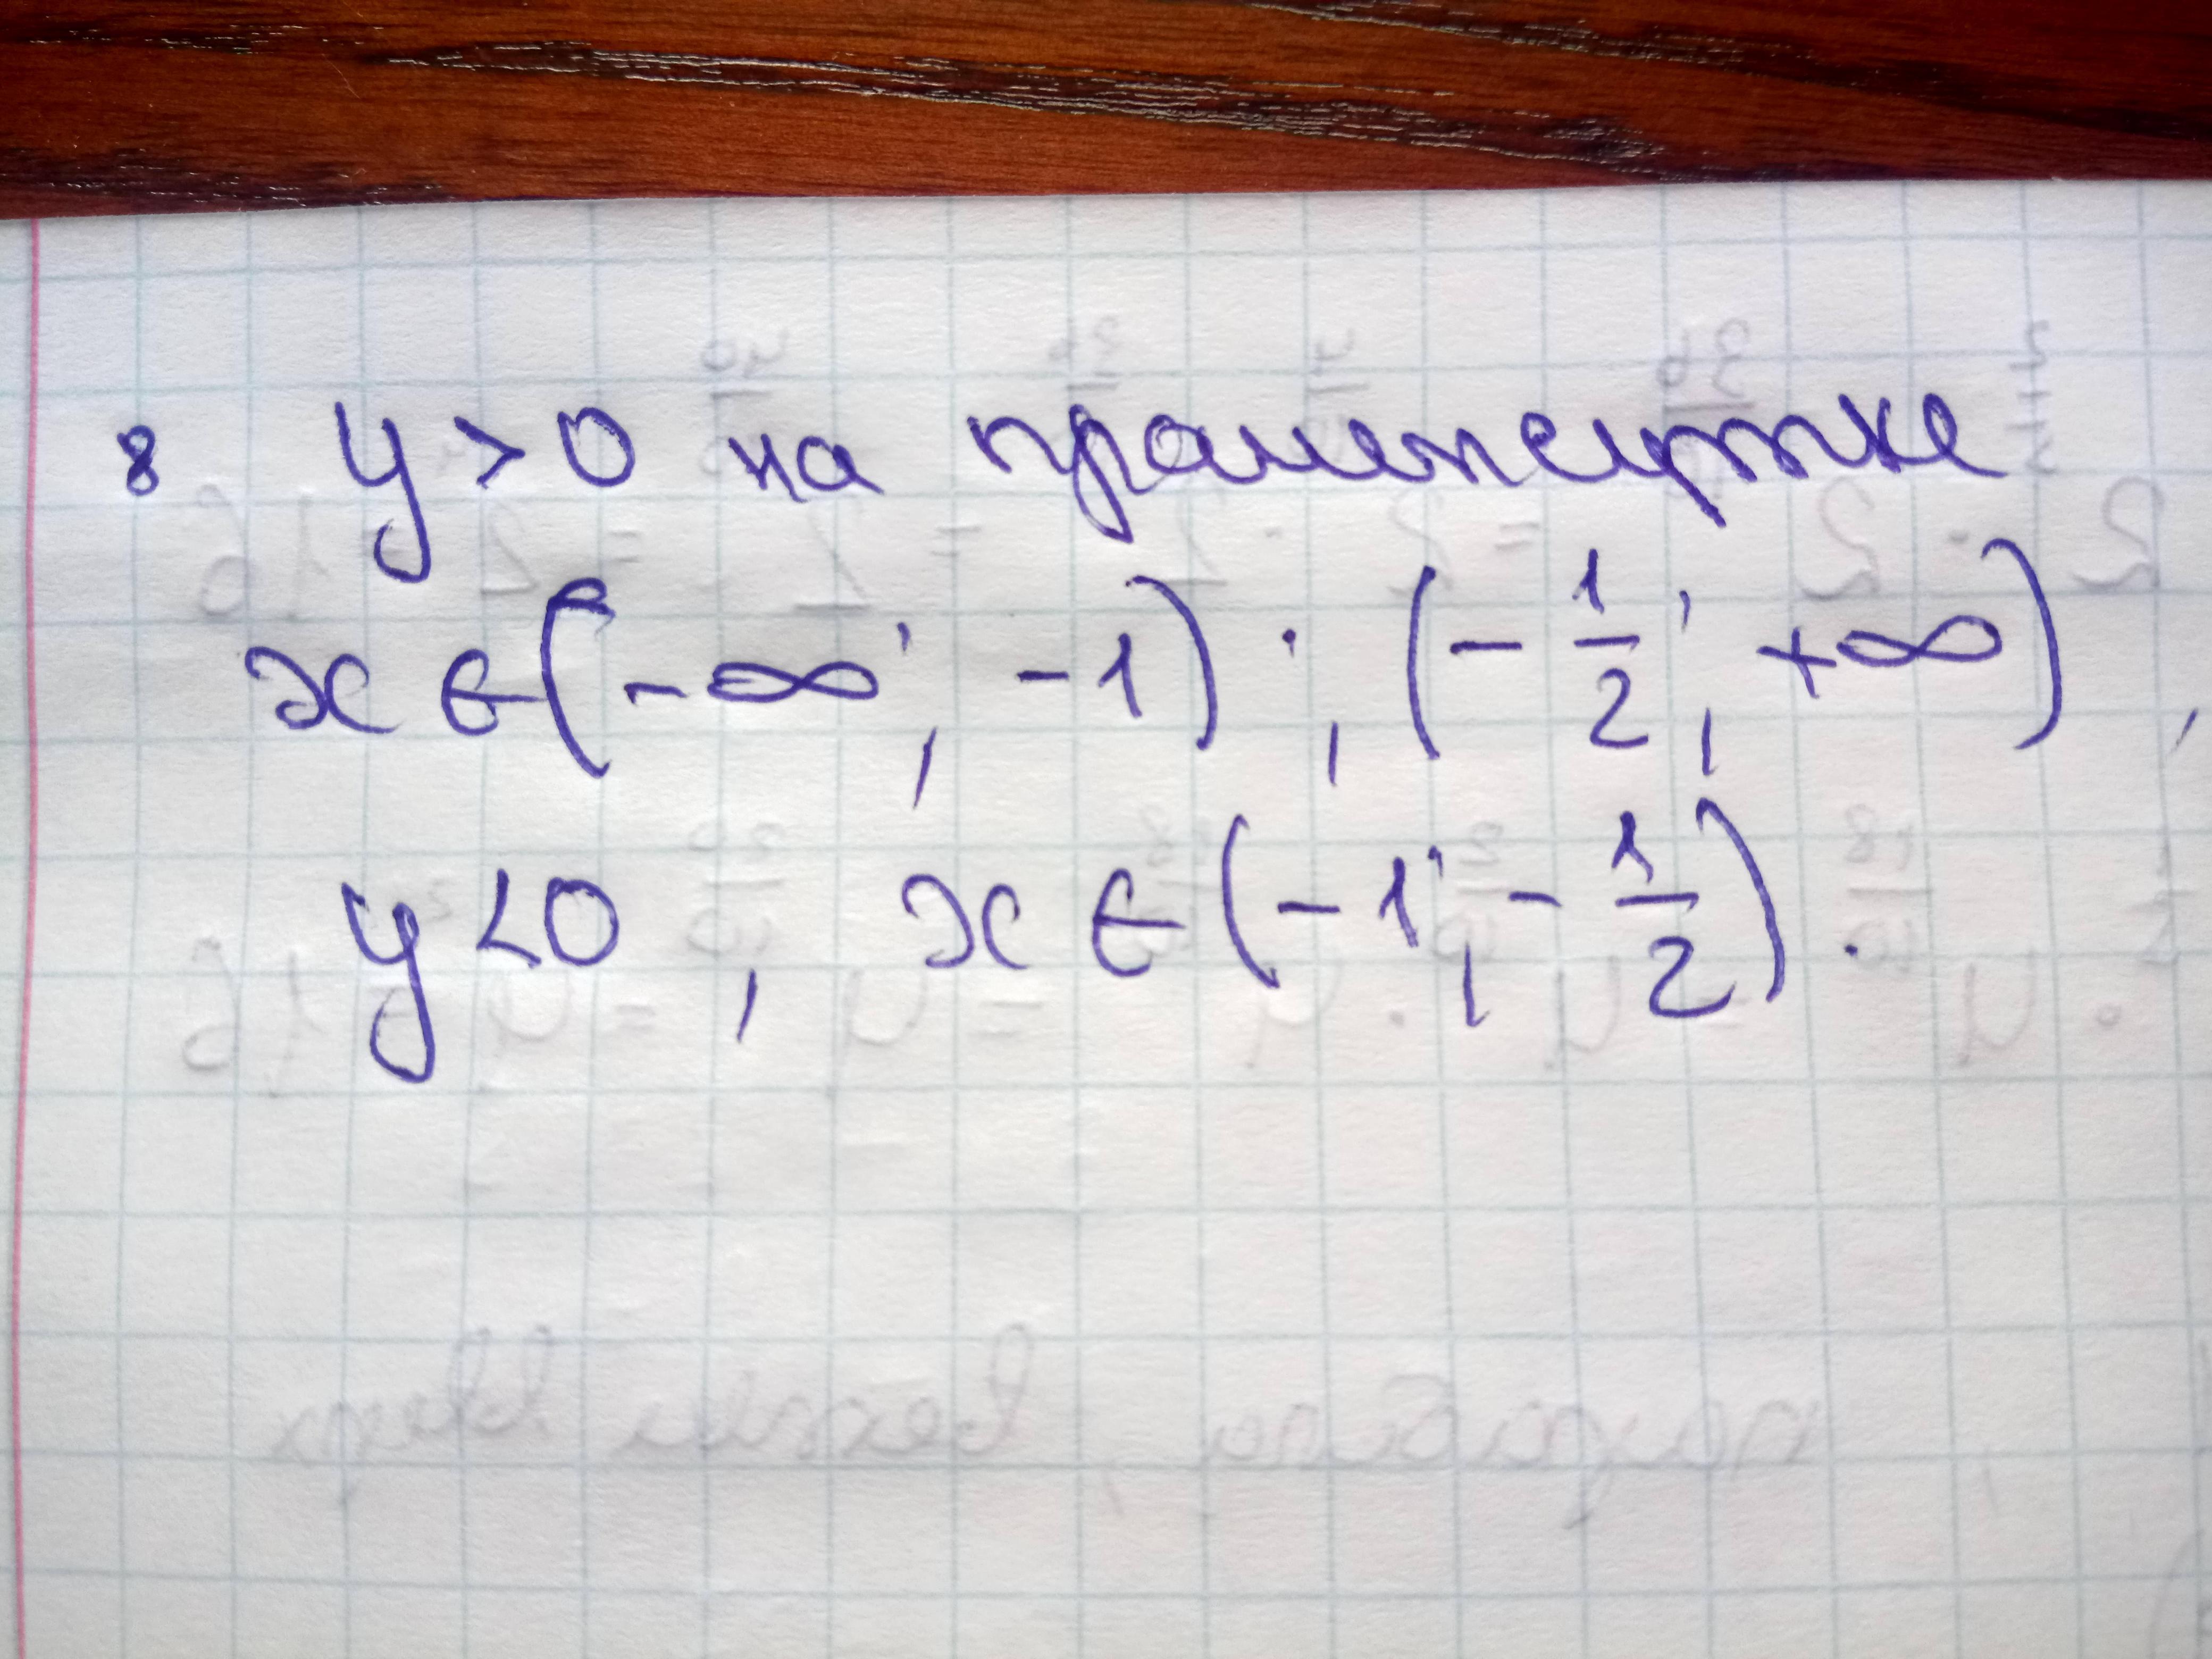 8 y > 0 на промежутке
x ∈ (-∞; -1); (-1/2; +∞),
y < 0, x ∈ (-1; -1/2).